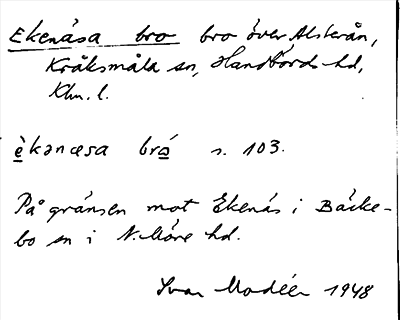 Ekenäsa bro bro över Alsterån,
Kråksmåla sn, Handbörds hd,
Klm. l.
èkənæsa brå s. 103.
På gränsen mot Ekenäs i Bäcke-
bo sn i N. Möre hd.
Ivar Modéer 1948